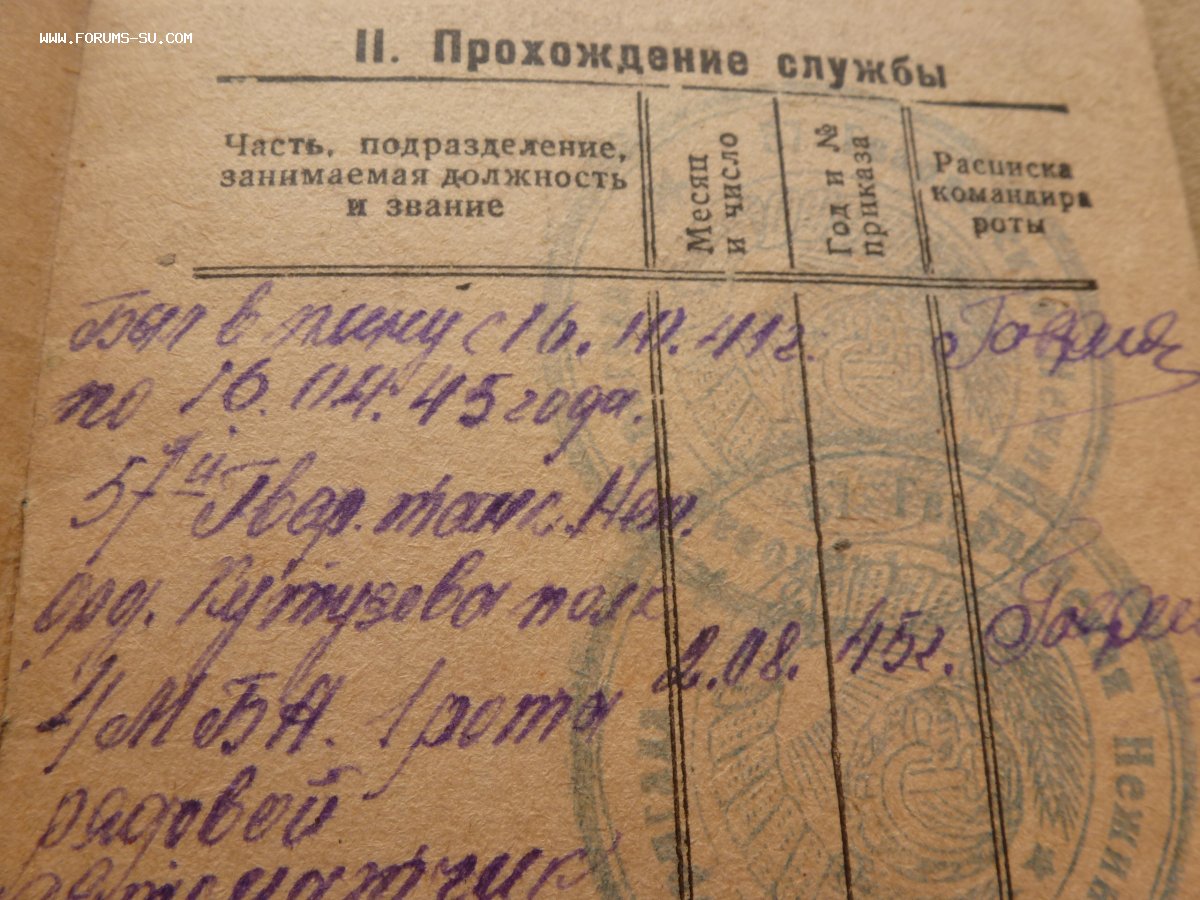 www.forums-su.com
II. Прохождение службы
Часть, подразделение,
занимаемая должность
и звание
Месяц
и число
Год и №
приказа
Расписка
командира
роты
Был в плену с 16. 10. 41 г.
по 16. 04. 45 года.
57й Гвар. танк. Неж.
орд. Кутузова полк
МБА. 1 рота
2.08. 45 г.
рядовой
автоматчик
Нежин